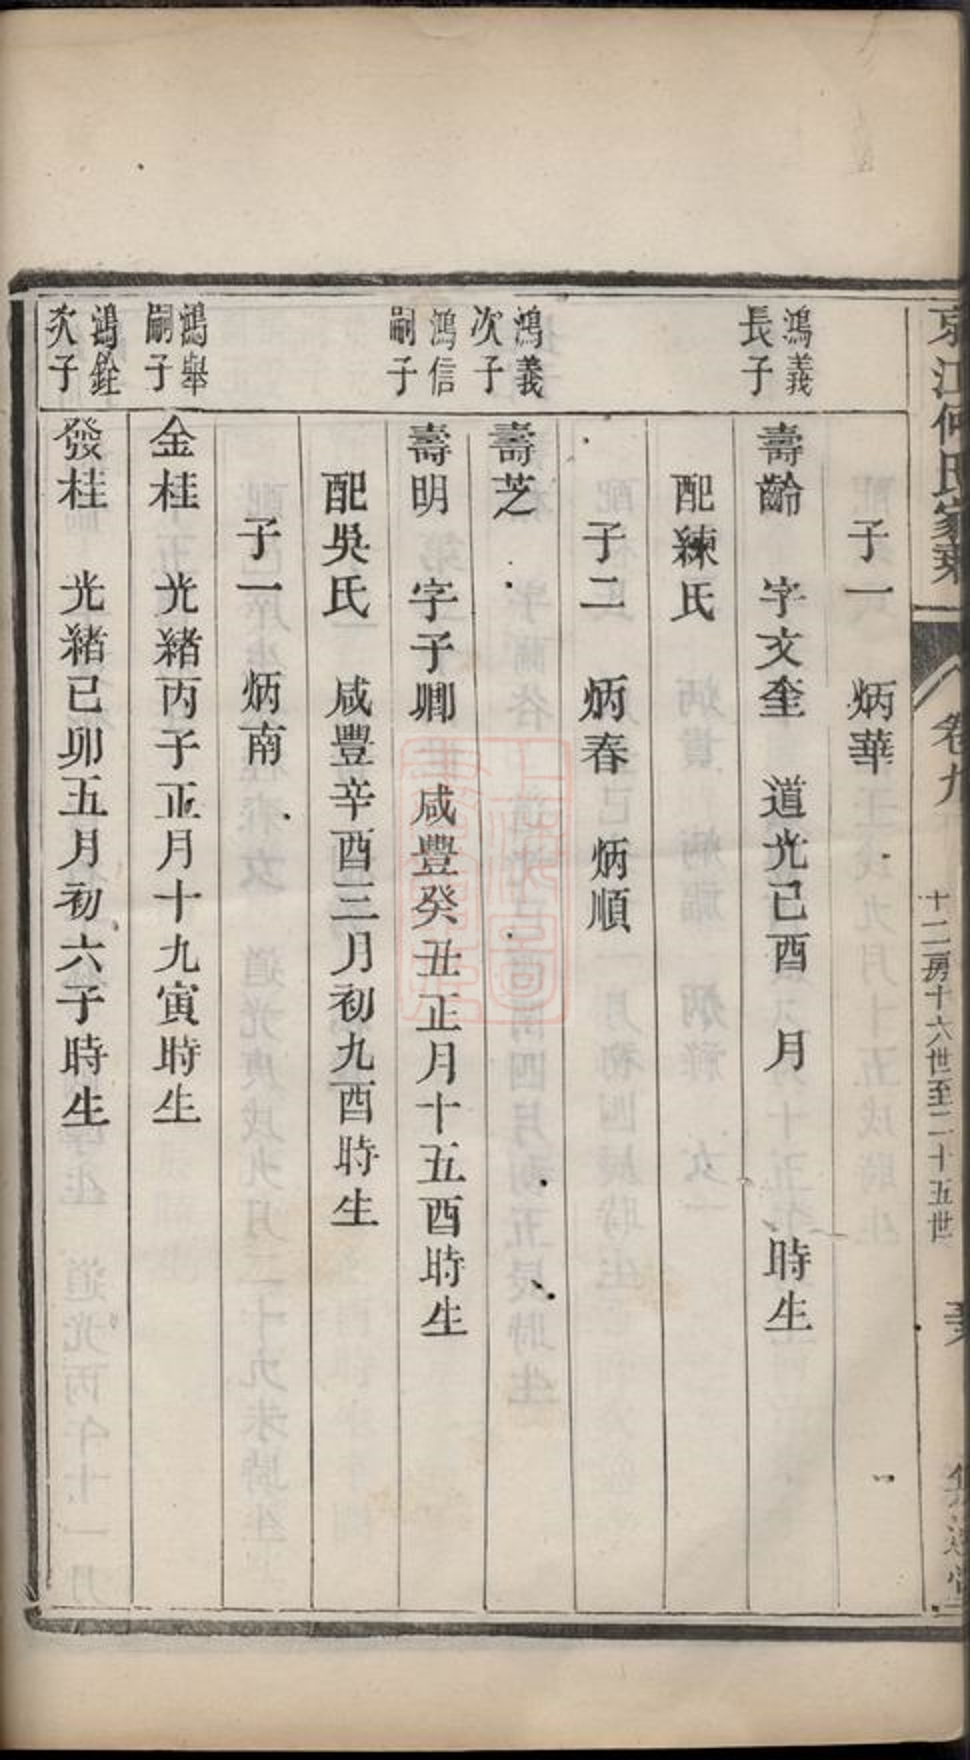 京江何氏家乘
卷九
十二房十六世至二十五世
子一　炳華
鴻義
長子
壽齡　字文奎　道光己酉　月　　時生
配練氏
子二　炳春　炳順
鴻義
次子
壽芝
鴻信
嗣子
壽明　字子卿　咸豐癸丑正月十五酉時生
配吳氏　咸豐辛酉三月初九酉時生
子一　炳南
鴻舉
嗣子
金桂　光緒丙子正月十九寅時生
鴻銓
次子
發桂　光緒己卯五月初六子時生